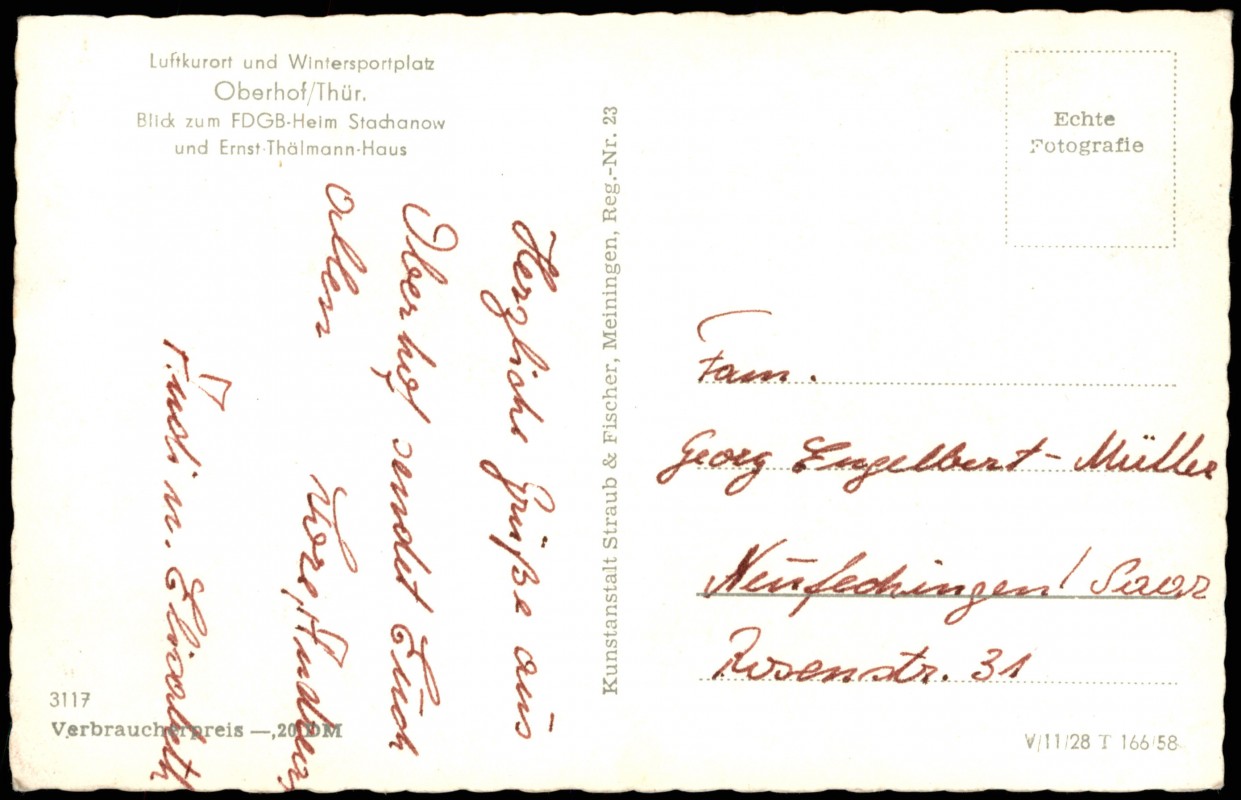 Luftkurort und Wintersportplatz
Oberhof/Thür.
Blick zum FDGB-Heim Stachanow
und Ernst-Thälmann-Haus
Herzliche Grüße aus
Oberhof sendet Euch
allen
u. Elisabeth
3117
Verbraucherpreis —,20 DM
Kunstanstalt Straub & Fischer, Meiningen, Reg.-Nr. 23
Echte
Fotografie
Fam.
Georg Engelbert-Müller
Neufechingen/Saar
Rosenstr. 31
V/11/28 T 166/58